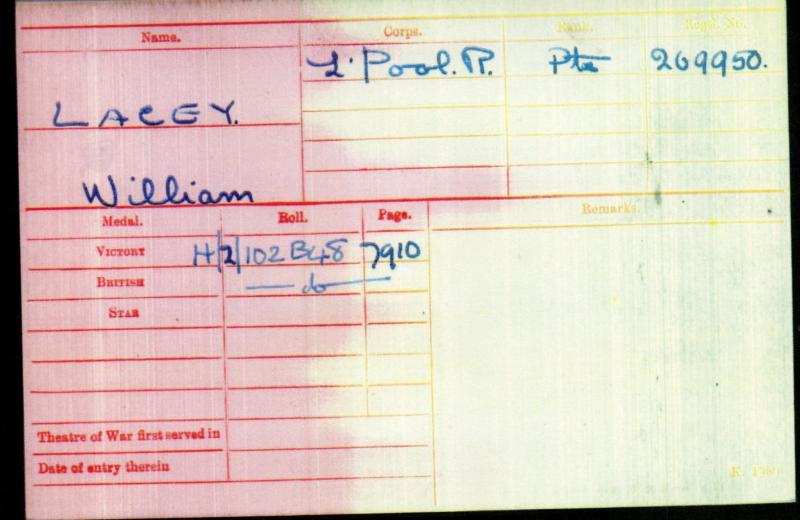 Name. Corps. Rank. Regtl. No.
L'Pool. R. Pte 269950.
LACEY.
William
Medal. Roll. Page. Remarks.
VICTORY H/2/102 B48 7910
BRITISH — do —
STAR
Theatre of War first served in
Date of entry therein